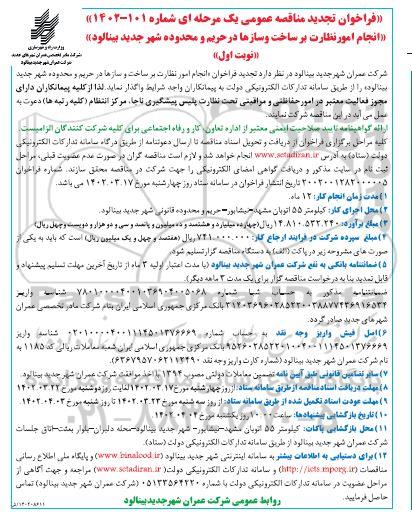 «فراخوان تجدید مناقصه عمومی یک مرحله ای شماره ۱۰۱-۱۴۰۲»
«انجام امور نظارت بر ساخت وسازها در حریم و محدوده شهر جدید بینالود»
«نوبت اول»
وزارت راه و شهرسازی
شرکت عمران شهر جدید بینالود
شرکت عمران شهرجدید بینالود در نظر دارد تجدید فراخوان «انجام امور نظارت بر ساخت و سازها در حریم و محدوده شهر جدید
بینالود» را از طریق سامانه تدارکات الکترونیکی دولت به پیمانکاران واجد شرایط واگذار نماید. لذا از کلیه پیمانکاران دارای
مجوز فعالیت معتبر در امور حفاظتی و مراقبتی تحت نظارت پلیس پیشگیری ناجا، مرکز انتظام (کلیه رتبه ها) دعوت به
عمل می آید در این مناقصه شرکت نمایند.
ارائه گواهینامه تایید صلاحیت ایمنی معتبر از اداره تعاون، کار و رفاه اجتماعی برای کلیه شرکت کنندگان الزامیست.
کلیه مراحل برگزاری فراخوان از دریافت و تحویل اسناد مناقصه تا ارسال دعوتنامه از طریق درگاه سامانه تدارکات الکترونیکی
دولت (ستاد) به آدرس www.setadiran.ir انجام خواهد شد و لازم است مناقصه گران در صورت عدم عضویت قبلی، مراحل
ثبت نام در سایت مذکور و دریافت گواهی امضای الکترونیکی را جهت شرکت در مناقصه محقق سازند. شماره فراخوان
تاریخ انتشار فراخوان در سامانه ستاد روز چهارشنبه مورخ ۱۴۰۲.۰۳.۱۷ می باشد.
۱) مدت زمان انجام کار: ۱۲ ماه.
۲) محل اجرای کار: کیلومتر ۵۵ اتوبان مشهد-نیشابور-حریم و محدوده قانونی شهر جدید بینالود.
۳) مبلغ برآورد: ۱۴.۸۱۰.۵۳۲.۲۴۰ ریال (چهارده میلیارد و هشتصد و ده میلیون و پانصد و سی و دو هزار و دویست و چهل ریال)
۴) مبلغ سپرده شرکت در فرایند ارجاع کار: ۷۴۱.۰۰۰.۰۰۰ ریال (هفتصد و چهل و یک میلیون ریال) است که باید به یکی از
صورت های مشروحه زیر در پاکت (الف) به دستگاه مناقصه گزار تسلیم شود.
۵) ضمانتنامه بانکی به نفع شرکت عمران شهر جدید بینالود (با مدت اعتبار اولیه ۳ ماه از تاریخ آخرین مهلت تسلیم پیشنهاد و
قابل تمدید بنا به درخواست مناقصه گزار برای یک مدت ۳ ماهه دیگر).
بانک مرکزی جمهوری اسلامی ایران بنام شرکت مادر تخصصی عمران
شهرهای جدید صادر گردد.
۶) اصل فیش واریز وجه نقد به حساب شماره شناسه واریز
بانک مرکزی جمهوری اسلامی ایران شعبه معاملات ریالی کد ۱۱۸۵ به
نام شرکت عمران شهر جدید بینالود
۷) سایر تضامین قانونی طبق آیین نامه تضمین معاملات دولتی مصوب ۱۳۹۴ با اخذ موافقت شرکت عمران شهر جدید بینالود.
۸) مهلت دریافت اسناد مناقصه از طریق سامانه ستاد: از روز چهارشنبه مورخ ۱۴۰۲.۰۳.۱۷ لغایت روز دوشنبه مورخ ۱۴۰۲.۰۳.۲۲
۹) مهلت عودت اسناد تکمیل شده از طریق سامانه ستاد: از روز سه شنبه مورخ ۱۴۰۲.۰۳.۲۳ تا روز شنبه مورخ ۱۴۰۲.۰۴.۰۳
۱۰) تاریخ بازگشایی پیشنهادها: ساعت ۱۰:۰۰ روز یکشنبه مورخ ۱۴۰۲.۰۴.۰۴
۱۱) محل بازگشایی پاکات: کیلومتر ۵۵ اتوبان مشهد-نیشابور- شهر جدید بینالود-محله دلبران-بلوار بعثت-اتاق جلسات
شرکت عمران شهر جدید بینالود از طریق سامانه تدارکات الکترونیکی دولت (ستاد).
۱۲) برای دستیابی به اطلاعات بیشتر به سامانه اینترنتی شهر جدید بینالود (www.binalood.ir) و پایگاه ملی اطلاع رسانی
مناقصات (http://iets.mporg.ir) و سامانه تدارکات الکترونیکی دولت (www.setadiran.ir) مراجعه و جهت آگاهی از
مراحل عضویت در سامانه تدارکات الکترونیکی دولت (ستاد) با شماره ۰۵۱۳۳۵۶۴۲۲۰ (شرکت عمران شهر جدید بینالود) تماس
حاصل فرمایید.
روابط عمومی شرکت عمران شهر جدید بینالود